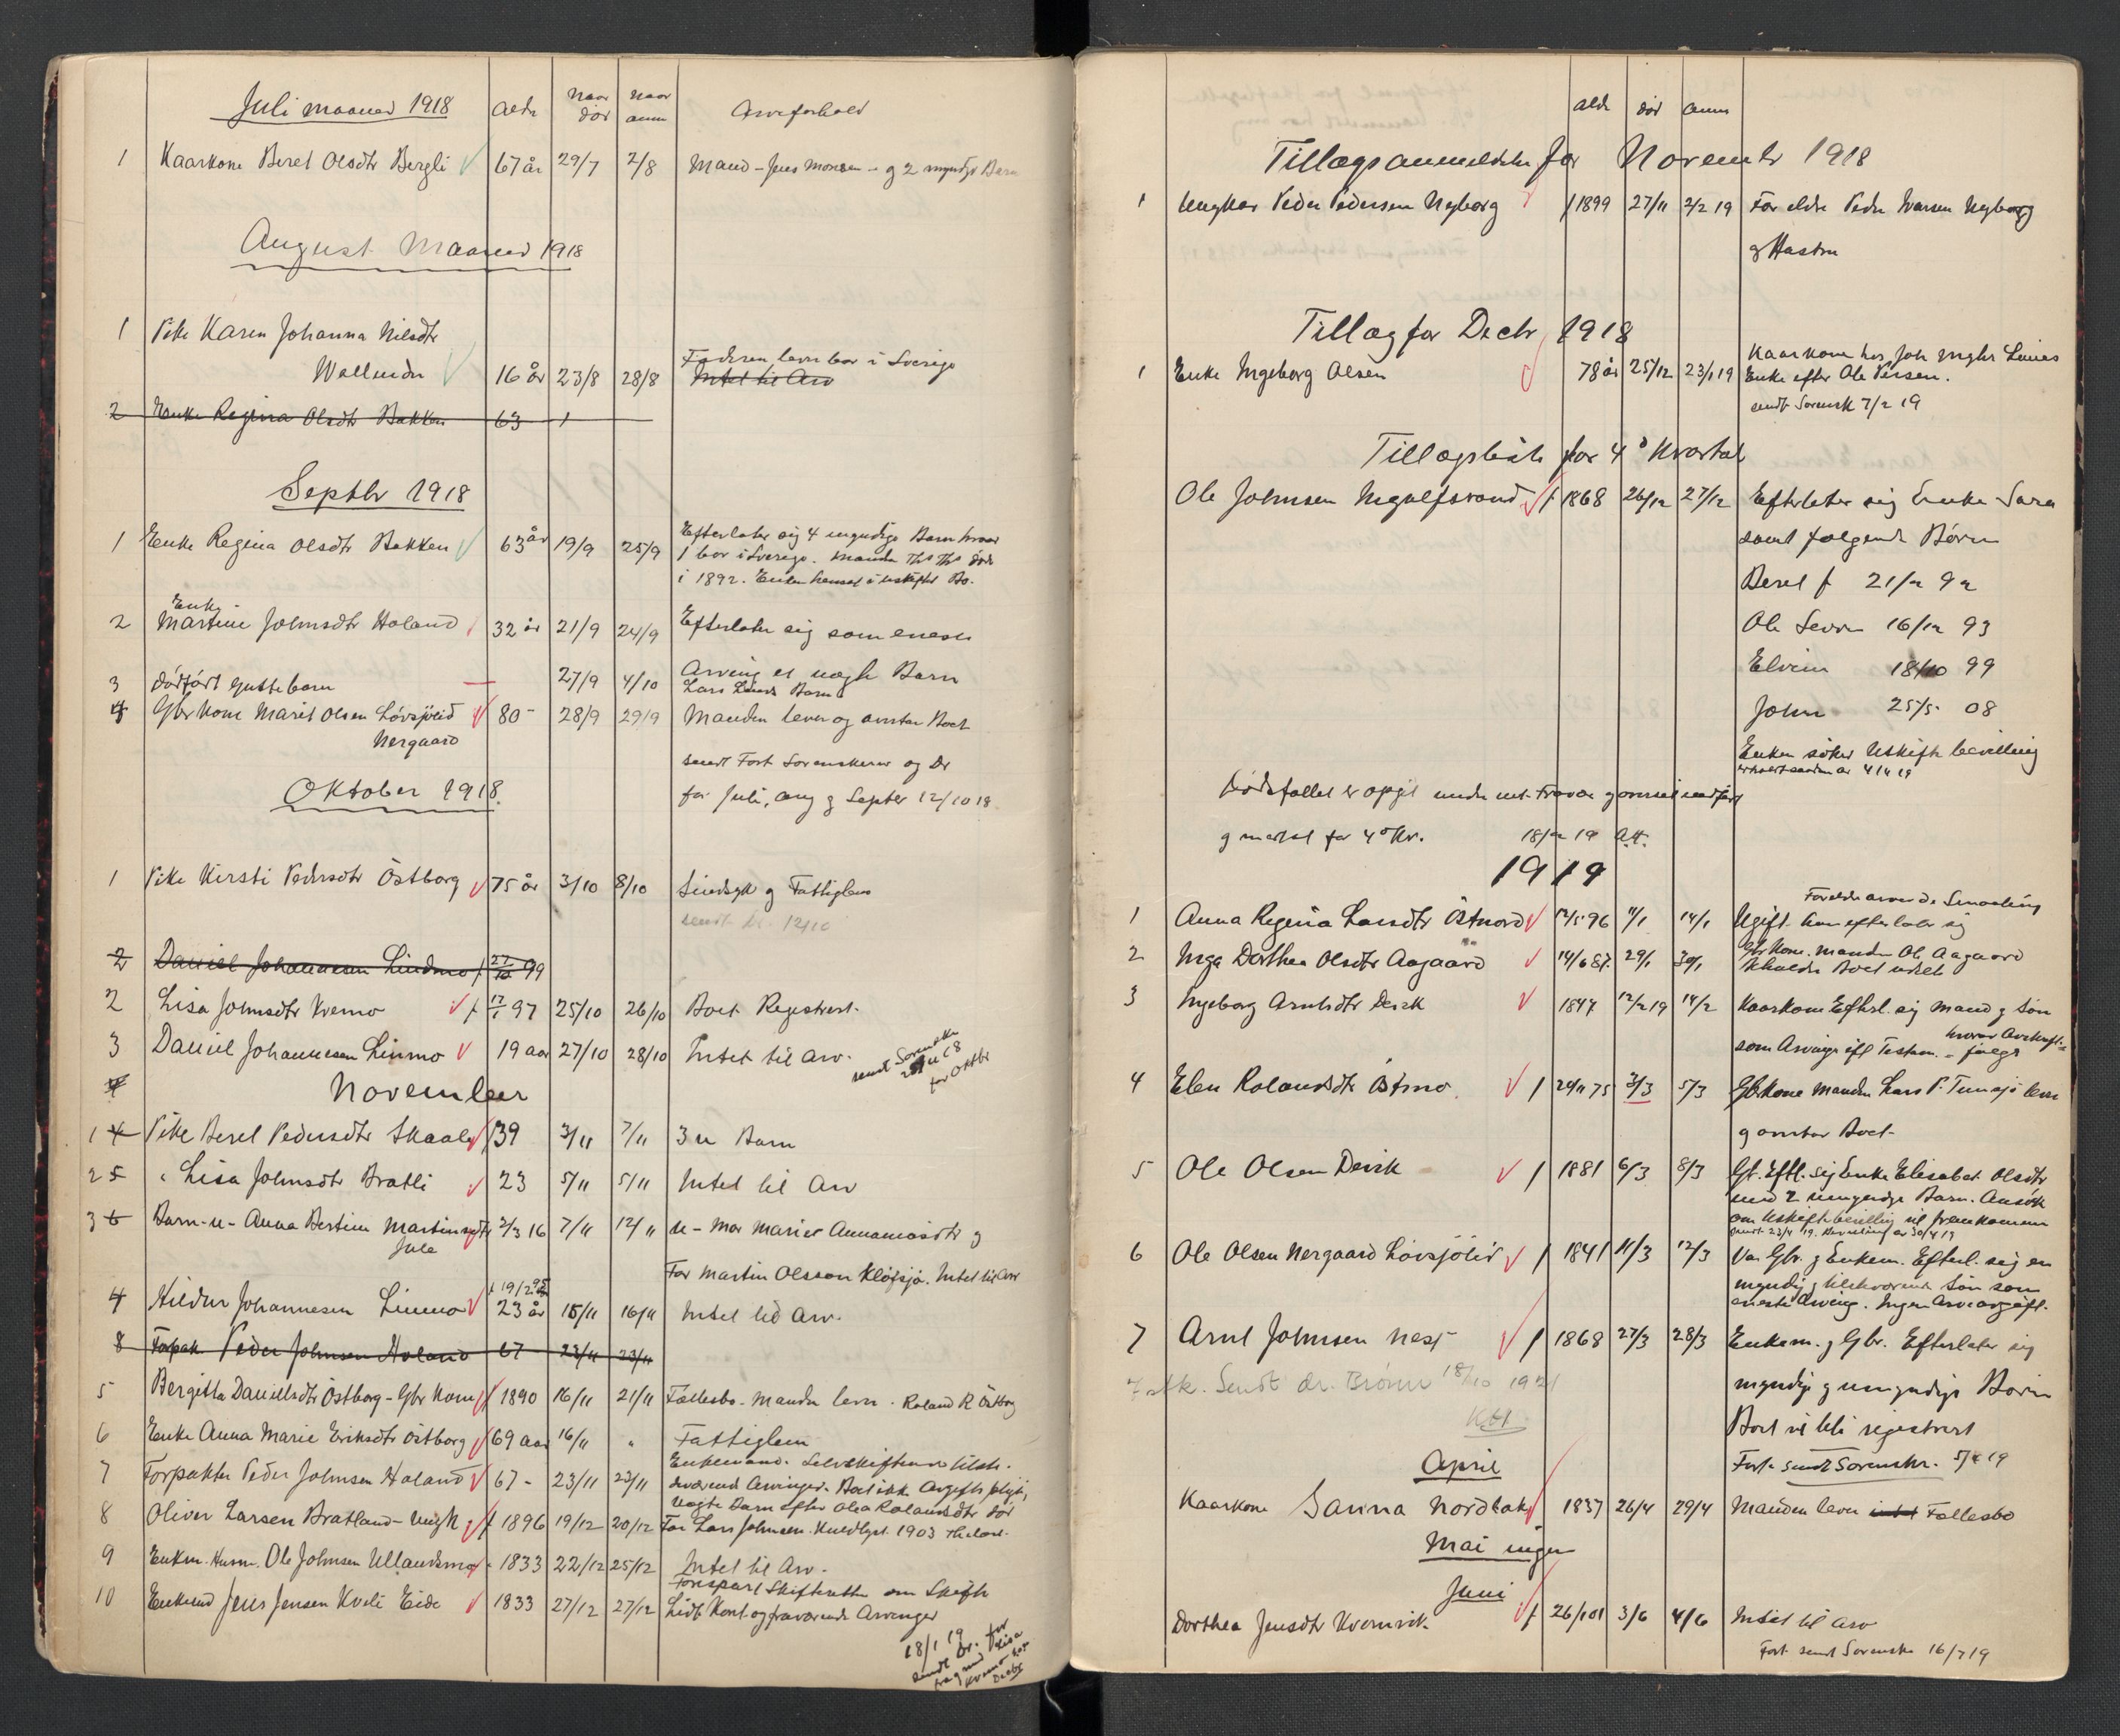 Juli maaned 1918 Alder Naar død Naar anm Arveforhold
1 Kaarkone Beret Olsdtr Bergli 67 år 29/7 2/8 Mand - Jens Monsen - og 2 myndige Barn
August Maaned 1918
1 Pike Karen Johanna Nilsdtr
Wallinder 16 år 23/8 28/8 Faderen lever bor i Sverige
Intet til Arv
2 Enke Regina Olsdtr Bakken 63
Septbr 1918
1 Enke Regina Olsdtr Bakken 63 år 19/9 25/9 Efterlater sig 4 myndige Barn hvorav
1 bor i Sverige. Manden Ths Ths døde
i 1892. Enken hensat i uskiftet Bo.
Enke
2 Martine Johnsdtr Holand 32 år 21/9 24/9 Efterlater sig som eneste
Arving et uægte Barn
3 dødfødt guttebarn 27/9 4/10 Lars Barn
4 Gbr Kone Marit Olsen Løvsjølid 80 - 28/9 29/9 Manden lever og overtar Boet
Nergaard
sendt Fort Sorenskriver og Dr
for Juli, Aug og Septbr 12/10 18
Oktober 1918.
1 Pike Kirsti Pedersdtr Östborg 75 år 3/10 8/10 Sindsyk og Fattiglem
sendt Dr. 12/10
2 Daniel Johannesen Lindmo f 27/10 99
2 Lisa Johnsdtr Kvemo f 17/1 97 25/10 26/10 Boet Registrert.
3 Daniel Johannesen Linmo 19 aar 27/10 28/10 Intet til Arv.
sendt Sorenskr
18
for Oktbr
4 November
1 4 Pike Beret Pedersdtr Skaale 39 3/11 7/11 3 u Barn
2 5 " Lisa Johnsdtr Bratli 23 5/11 5/11 Intet til Arv
3 6 Barn - u - Anna Bertine Martinsdtr 2/3 16 7/11 12/11 u - Mor Marie og
Jule
Far Martin Olsson Klöfsjö. Intet til Arv
f 19/2 95
4 Hildur Johannesen Linmo 23 år 15/11 16/11 Intet til Arv.
8 Forpak Peder Johnsen Holand 67 23/11 23/11
5 Bergitta Danielsdtr Östborg - Gbr Kone f 1890 16/11 21/11 Fællesbo. Manden lever. Roland R Östborg
6 Enke Anna Marie Eriksdtr Östborg 69 aar 16/11 " Fattiglem
7 Forpakter Peder Johnsen Holand 67 - 23/11 23/11 Enkemand. Selvskiftende tilste-
deværend Arvinger. Boet ikke Avgifts pligtig
8 Oliver Larsen Bratland - Ungk f 1896 19/12 20/12 Uægte Barn efter Olea Rolandsdtr død
Far Lars Johnsen. Kuldlyst 1903
9 Enkm. Husm. Ole Johnsen Ullandsmo 1833 22/12 25/12 Intet til Arv.
10 Enkemd Jens Jensen Kveli Eide 1833 27/12 27/12 Forespurt Skifteretten om Skifte
Lidt Kont og fraværende Arvinger
18/1 19
sendt Dr. for
Lisa
Kvemo for
Decbr
alder død anm
Tillægsanmeldelse for November 1918
1 Ungkar Peder Pedersen Nyborg f 1899 27/11 2/2 19 Forældre Peder Iversen Nyborg
og Hustru
Tillæg for Decbr 1918
1 Enke Ingeborg Olsen 78 år 25/12 23/1 19 Kaarkone hos Joh Linnes
Enke efter Ole Persen.
sendt Sorensk 7/2 19
Tillægsliste for 4de Kvartal
Ole Johnsen Ingulfsvand f 1868 26/12 27/12 Efterlater sig Enke Sara
samt følgende Børn
Beret f 21/2 92
Ole Sevrin 16/12 93
Elvine 18/10 99
John 25/5 08
Enken søker Uskifte bevilling
4/4 19
Dødsfallet er opgit under
og merket for 4de Kv. 18/2 19 A.H.
1919
1 Anna Regina Larsdtr Östnord 12/5 96 11/1 14/1 Ugift. hun efterlater sig
Forældre
2 Inga Dorthea Olsdtr Aagaard 14/6 87 29/1 30/1 Gbr Kone. Manden Ol. Aagaard
beholder Boet udelt
3 Ingeborg Arntsdtr Devik 1847 12/2 19 14/2 Kaarkone Efterl. sig Mand og Søn
som Arvinge ifl Testam. -
4 Elen Rolandsdtr Östmo f 24/11 75 3/3 5/3 Gbkone Manden Lars P. Tunsjø lever
og overtar Boet.
5 Ole Olsen Devik f 1881 6/3 8/3 Gb. Eftl. sig Enke Elisabet Olsdtr
med 2 umyndige Barn. Ansøk
om Uskiftebevilling vil fremkomme
sendt 23/4 19. Bevilling av 30/4 19
6 Ole Olsen Nergaard Løvsjölid f 1841 11/3 12/3 Var Gbr. og Enkem. Efterl. sig en
myndig og tilstedeværende Søn som
eneste Arving. Ingen Arveavgift.
7 Arnt Johnsen Nest f 1868 27/3 28/3 Enkem. og Gbr. Efterlater sig
myndige og umyndige Børn
Boet vil bli registrert
Fort. sendt Sorenskr. 5/4 19
7 stk. Sendt dr. Brönn 18/10 1921
April
Kaarkone Sarina Nordbak 1837 26/4 29/4 Manden lever intet Fællesbo
Mai ingen
Juni
Dorthea Jensdtr Kvernvik f 26/1 01 3/6 4/6 Intet til Arv
Fort sendt Sorenskr 16/7 19